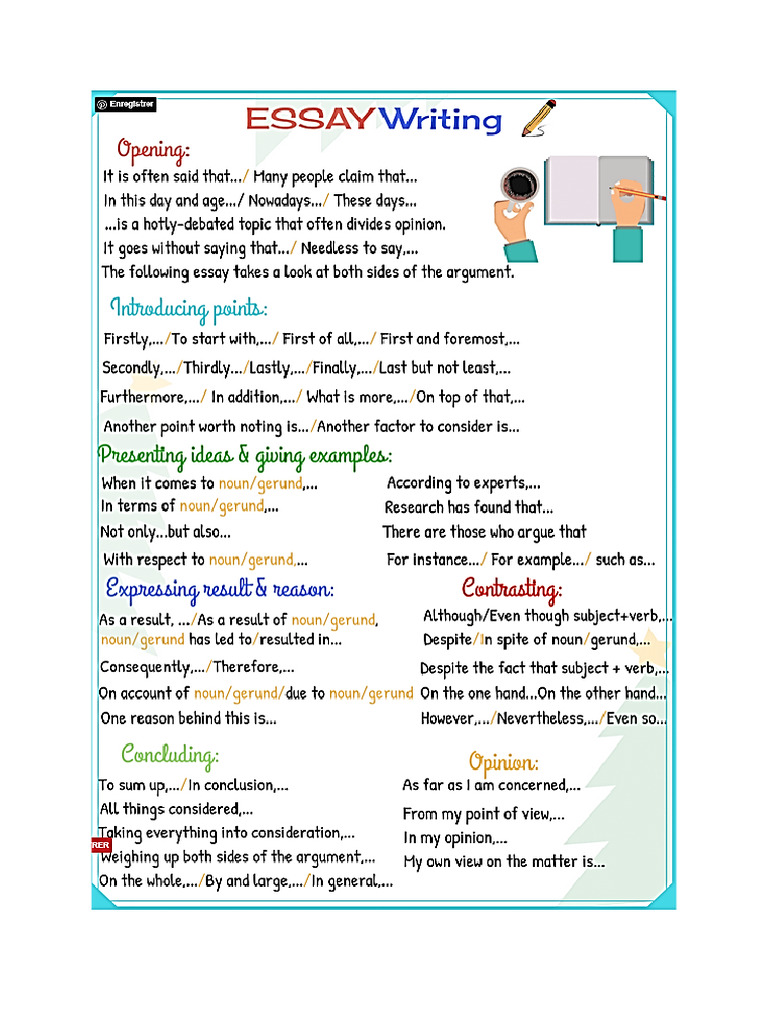 Enregistrer
ESSAY Writing
Opening:
It is often said that.../ Many people claim that...
In this day and age.../ Nowadays.../ These days...
...is a hotly-debated topic that often divides opinion.
It goes without saying that.../ Needless to say,...
The following essay takes a look at both sides of the argument.
Introducing points:
Firstly,.../To start with,.../ First of all,.../ First and foremost,...
Secondly,.../Thirdly.../Lastly,.../Finally,.../Last but not least,...
Furthermore,.../ In addition,.../ What is more,.../On top of that,...
Another point worth noting is.../Another factor to consider is...
Presenting ideas & giving examples:
When it comes to noun/gerund,...
In terms of noun/gerund,...
Not only...but also...
With respect to noun/gerund,...
According to experts,...
Research has found that...
There are those who argue that
For instance.../ For example.../ such as...
Expressing result & reason:
As a result, .../As a result of noun/gerund,
noun/gerund has led to/resulted in...
Consequently,.../Therefore,...
On account of noun/gerund/due to noun/gerund
One reason behind this is...
Contrasting:
Although/Even though subject+verb,...
Despite/In spite of noun/gerund,...
Despite the fact that subject + verb,...
On the one hand...On the other hand...
However,.../Nevertheless,.../Even so...
Concluding:
To sum up,.../In conclusion,...
All things considered,...
Taking everything into consideration,...
RER
Weighing up both sides of the argument,...
On the whole,.../By and large,.../In general,...
Opinion:
As far as I am concerned,...
From my point of view,...
In my opinion,...
My own view on the matter is...